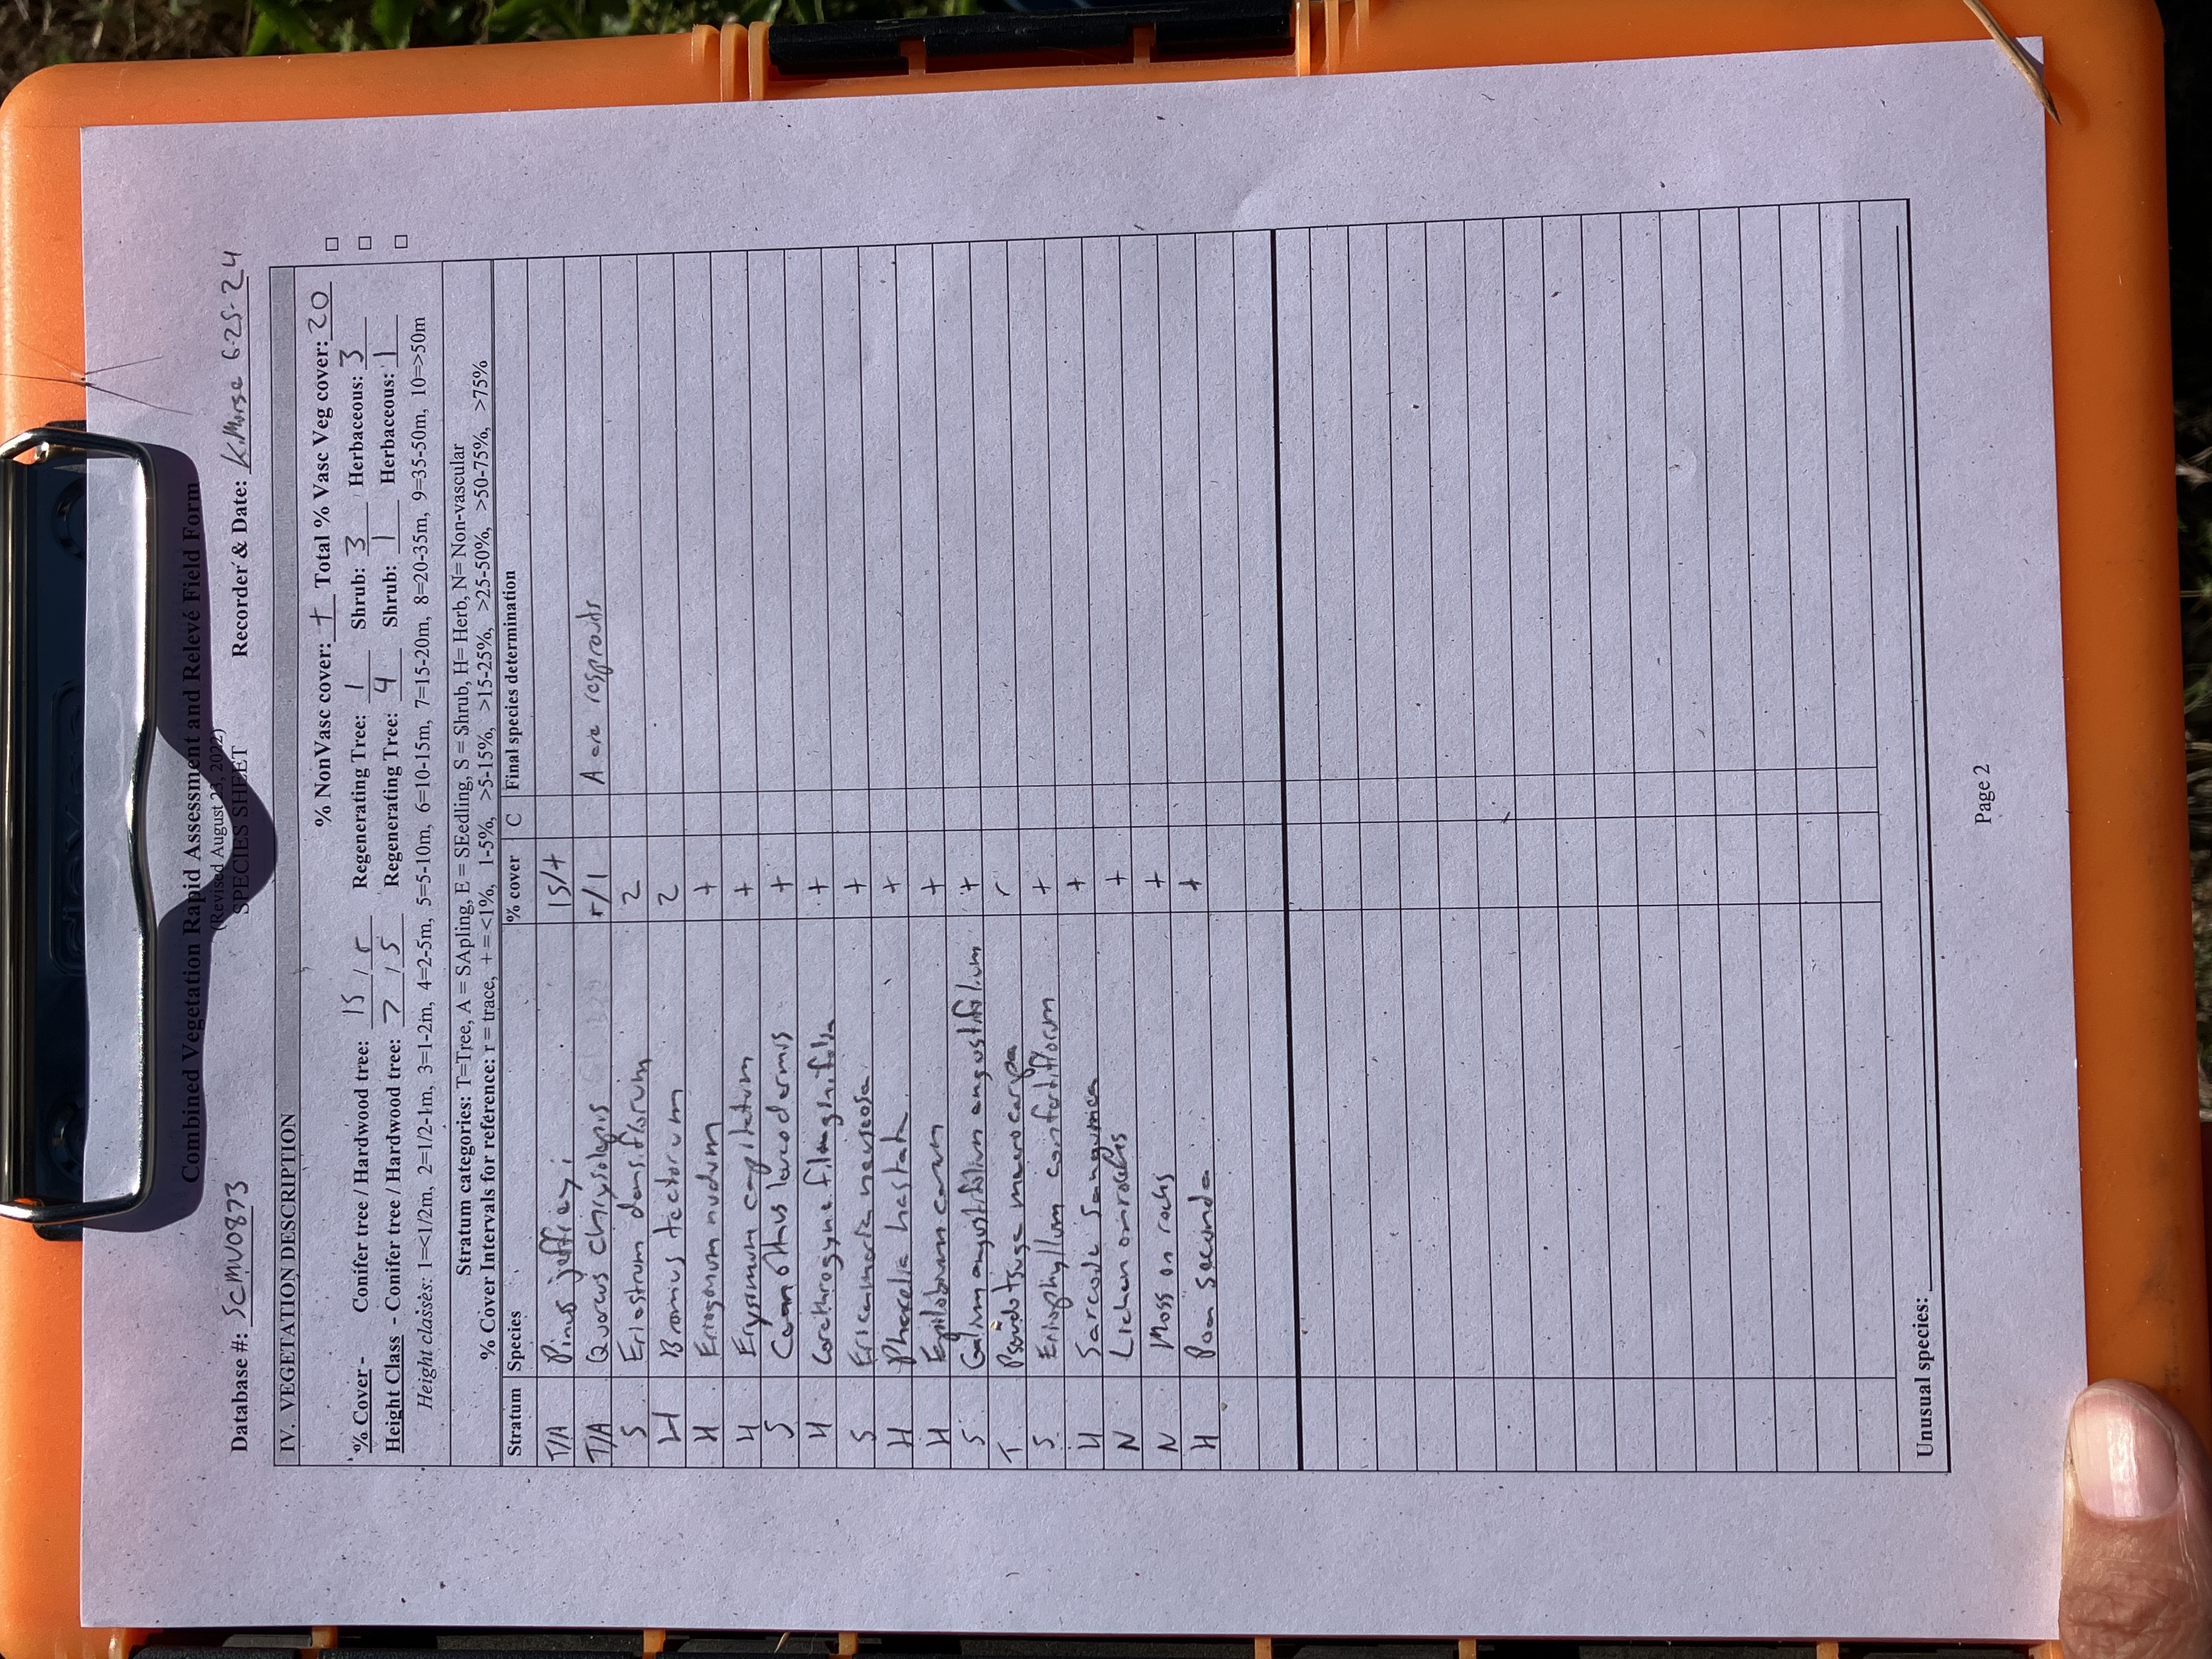 Combined Vegetation Rapid Assessment and Relevé Field Form
(Revised August 23, 2022)
SPECIES SHEET
Database #: SCMV0873 Recorder & Date: K.Morse 6-25-24
IV. VEGETATION DESCRIPTION
% NonVasc cover: + Total % Vasc Veg cover: 20
% Cover - Conifer tree / Hardwood tree: 15 / r Regenerating Tree: 1 Shrub: 3 Herbaceous: 3
Height Class - Conifer tree / Hardwood tree: 7 / 5 Regenerating Tree: 4 Shrub: 1 Herbaceous: 1
Height classes: 1=<1/2m, 2=1/2-1m, 3=1-2m, 4=2-5m, 5=5-10m, 6=10-15m, 7=15-20m, 8=20-35m, 9=35-50m, 10=>50m
Stratum categories: T=Tree, A = SApling, E = SEedling, S = Shrub, H= Herb, N= Non-vascular
% Cover Intervals for reference: r = trace, + = <1%, 1-5%, >5-15%, >15-25%, >25-50%, >50-75%, >75%
Stratum Species % cover C Final species determination
T/A Pinus jeffreyi 15/+
T/A Quercus chrysolepis r/1 A are resprouts
S Eriastrum densiflorum 2
H Bromus tectorum 2
H Eriogonum nudum +
H Erysimum capitatum +
S Ceanothus leucodermis +
H Corethrogyne filaginifolia +
S Ericameria nauseosa +
H Phacelia hastata +
H Epilobium canum +
S Galium angustifolium angustifolium +
T Pseudotsuga macrocarpa r
S Eriophyllum confertiflorum +
H Sarcodes sanguinea +
N Lichen on rocks +
N Moss on rocks +
H Poa secunda +
Unusual species:
Page 2